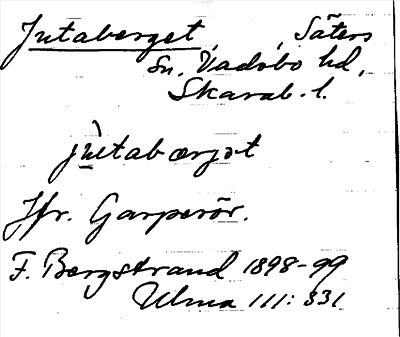 Jutaberget, Säters
sn, Vadsbo hd,
Skarab. l.
jùtabærjət
Jfr. Garperör.
F. Bergstrand 1898-99
Ulma 111: 331